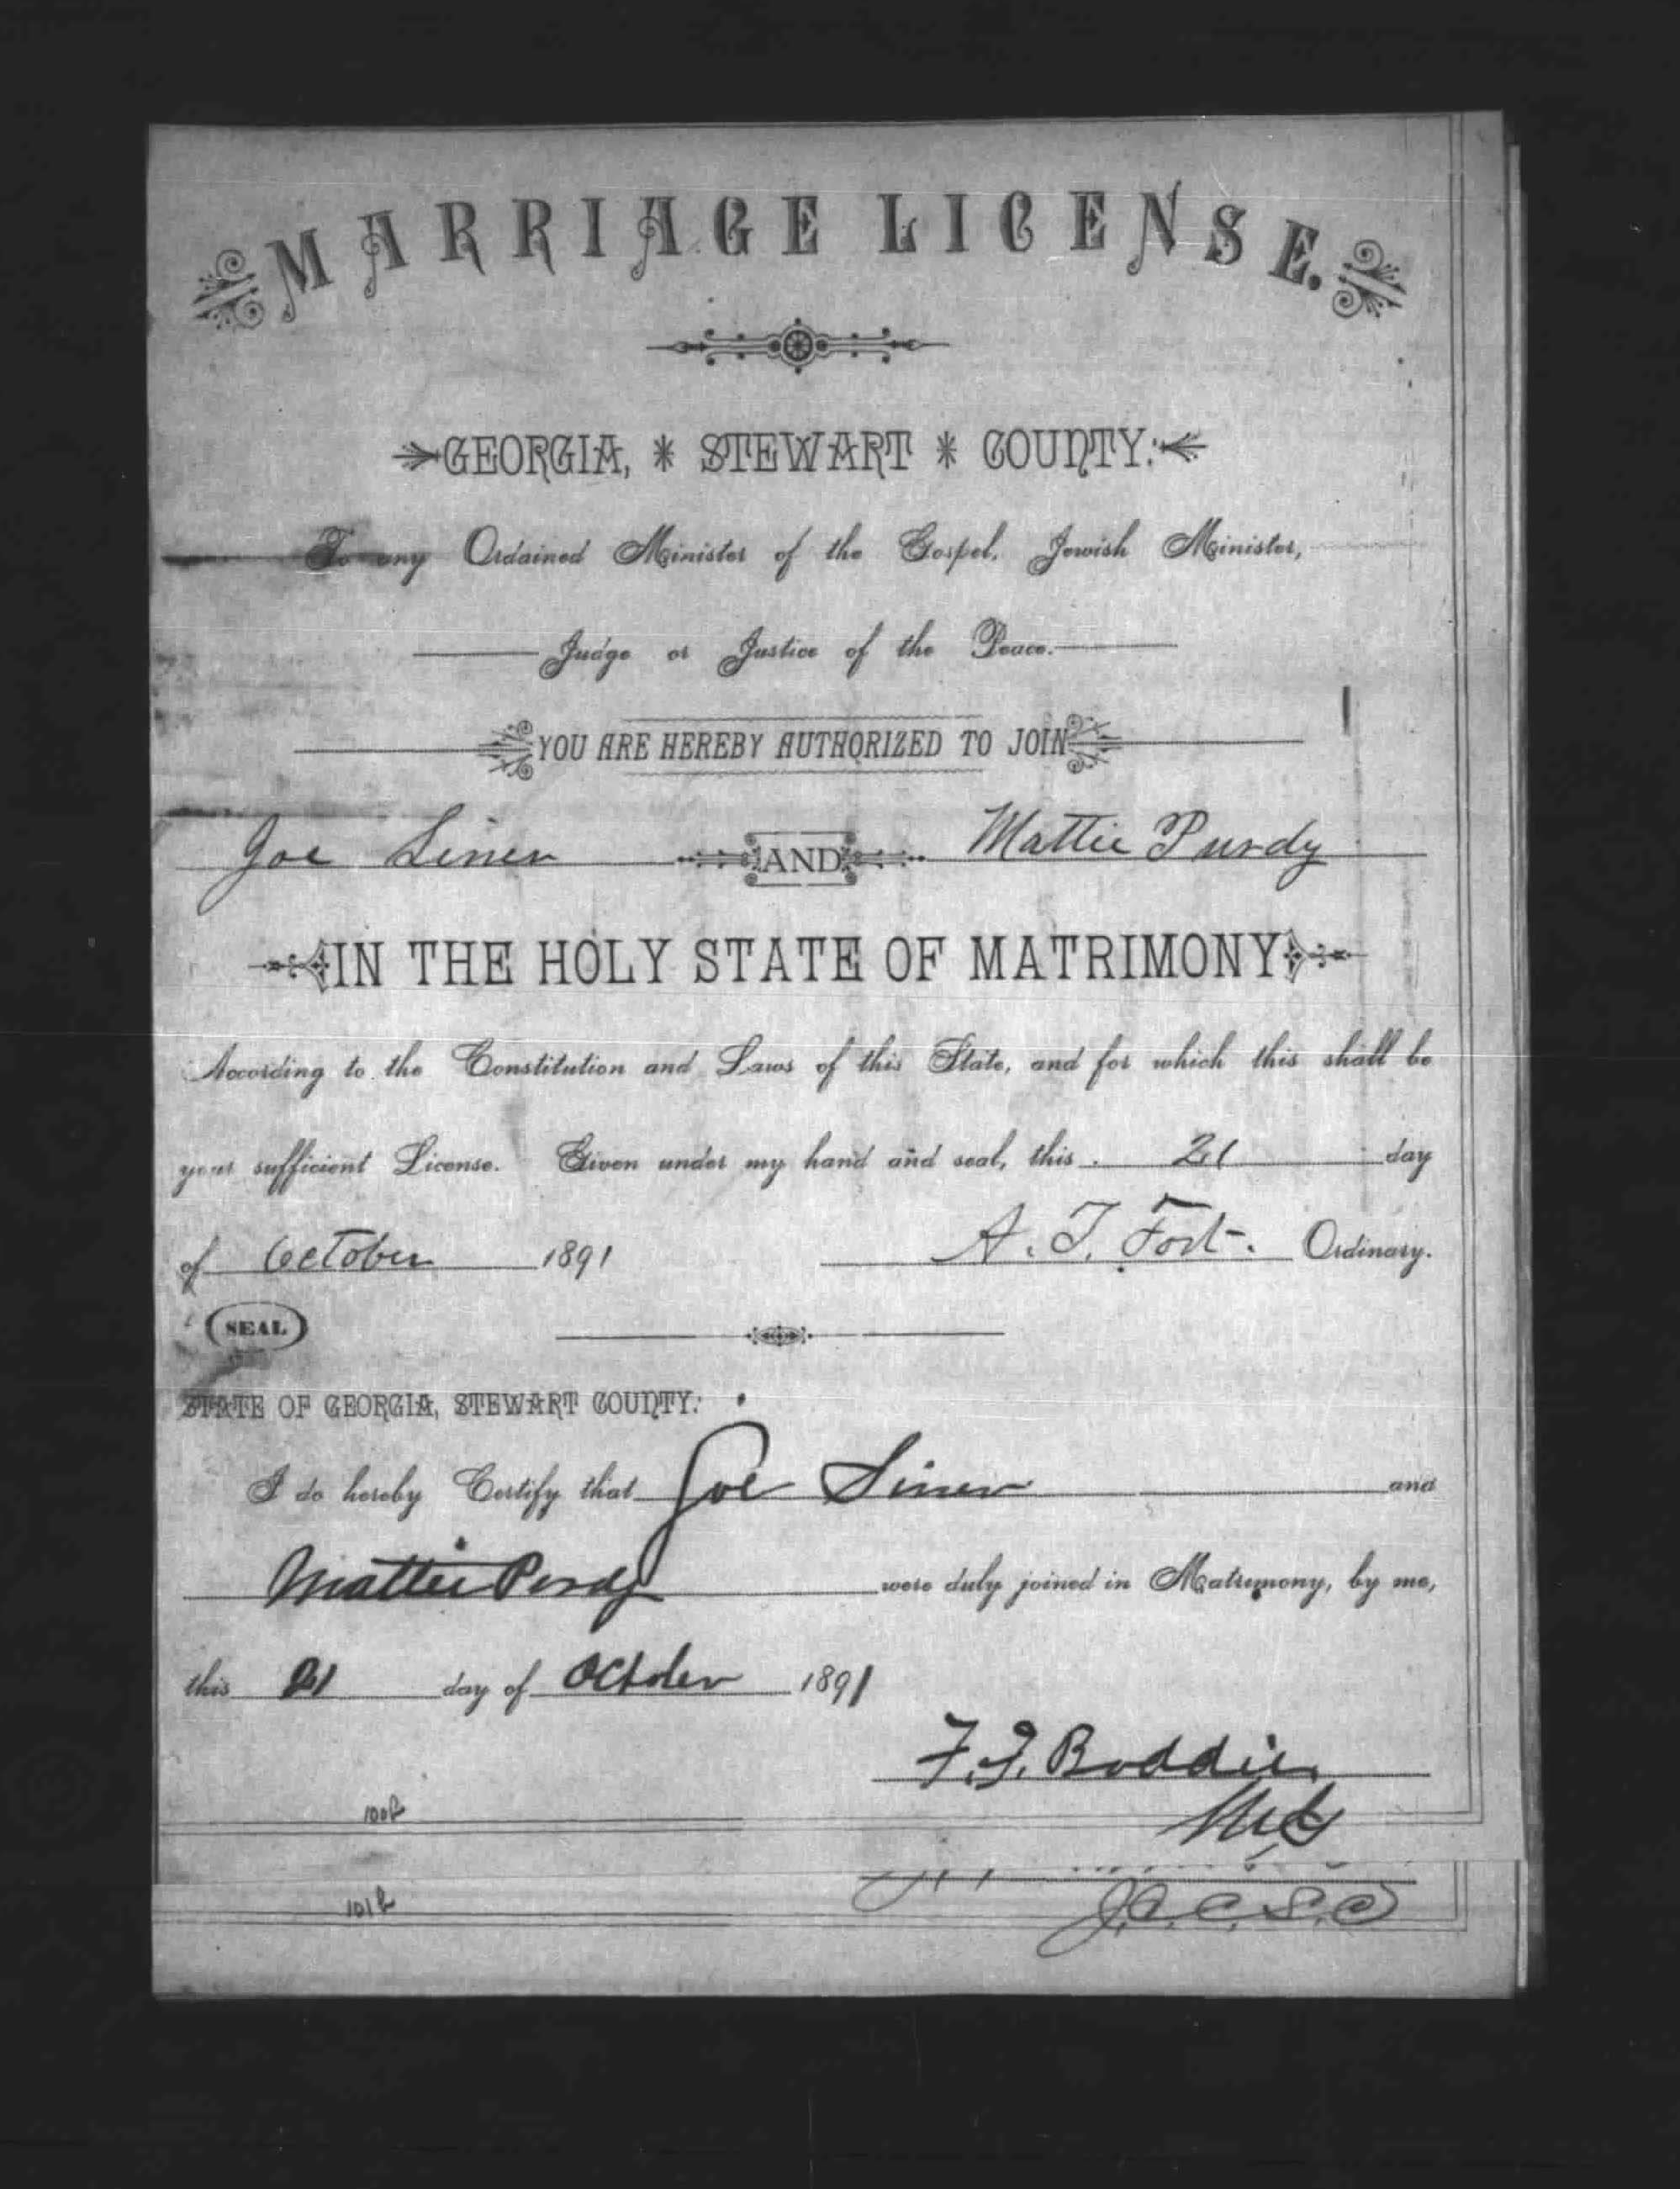 MARRIAGE LICENSE.
GEORGIA, * STEWART * COUNTY:
To any Ordained Minister of the Gospel, Jewish Minister,
Judge or Justice of the Peace.
YOU ARE HEREBY AUTHORIZED TO JOIN
Joe Siner AND Mattie Purdy
IN THE HOLY STATE OF MATRIMONY
According to the Constitution and Laws of this State, and for which this shall be
your sufficient License. Given under my hand and seal, this 21 day
of October 1891 A. T. Fort. Ordinary.
SEAL
STATE OF GEORGIA, STEWART COUNTY:
I do hereby Certify that Joe Siner and
Mattie Purdy were duly joined in Matrimony, by me,
this 21 day of October 1891
F. J. Boddie
MG